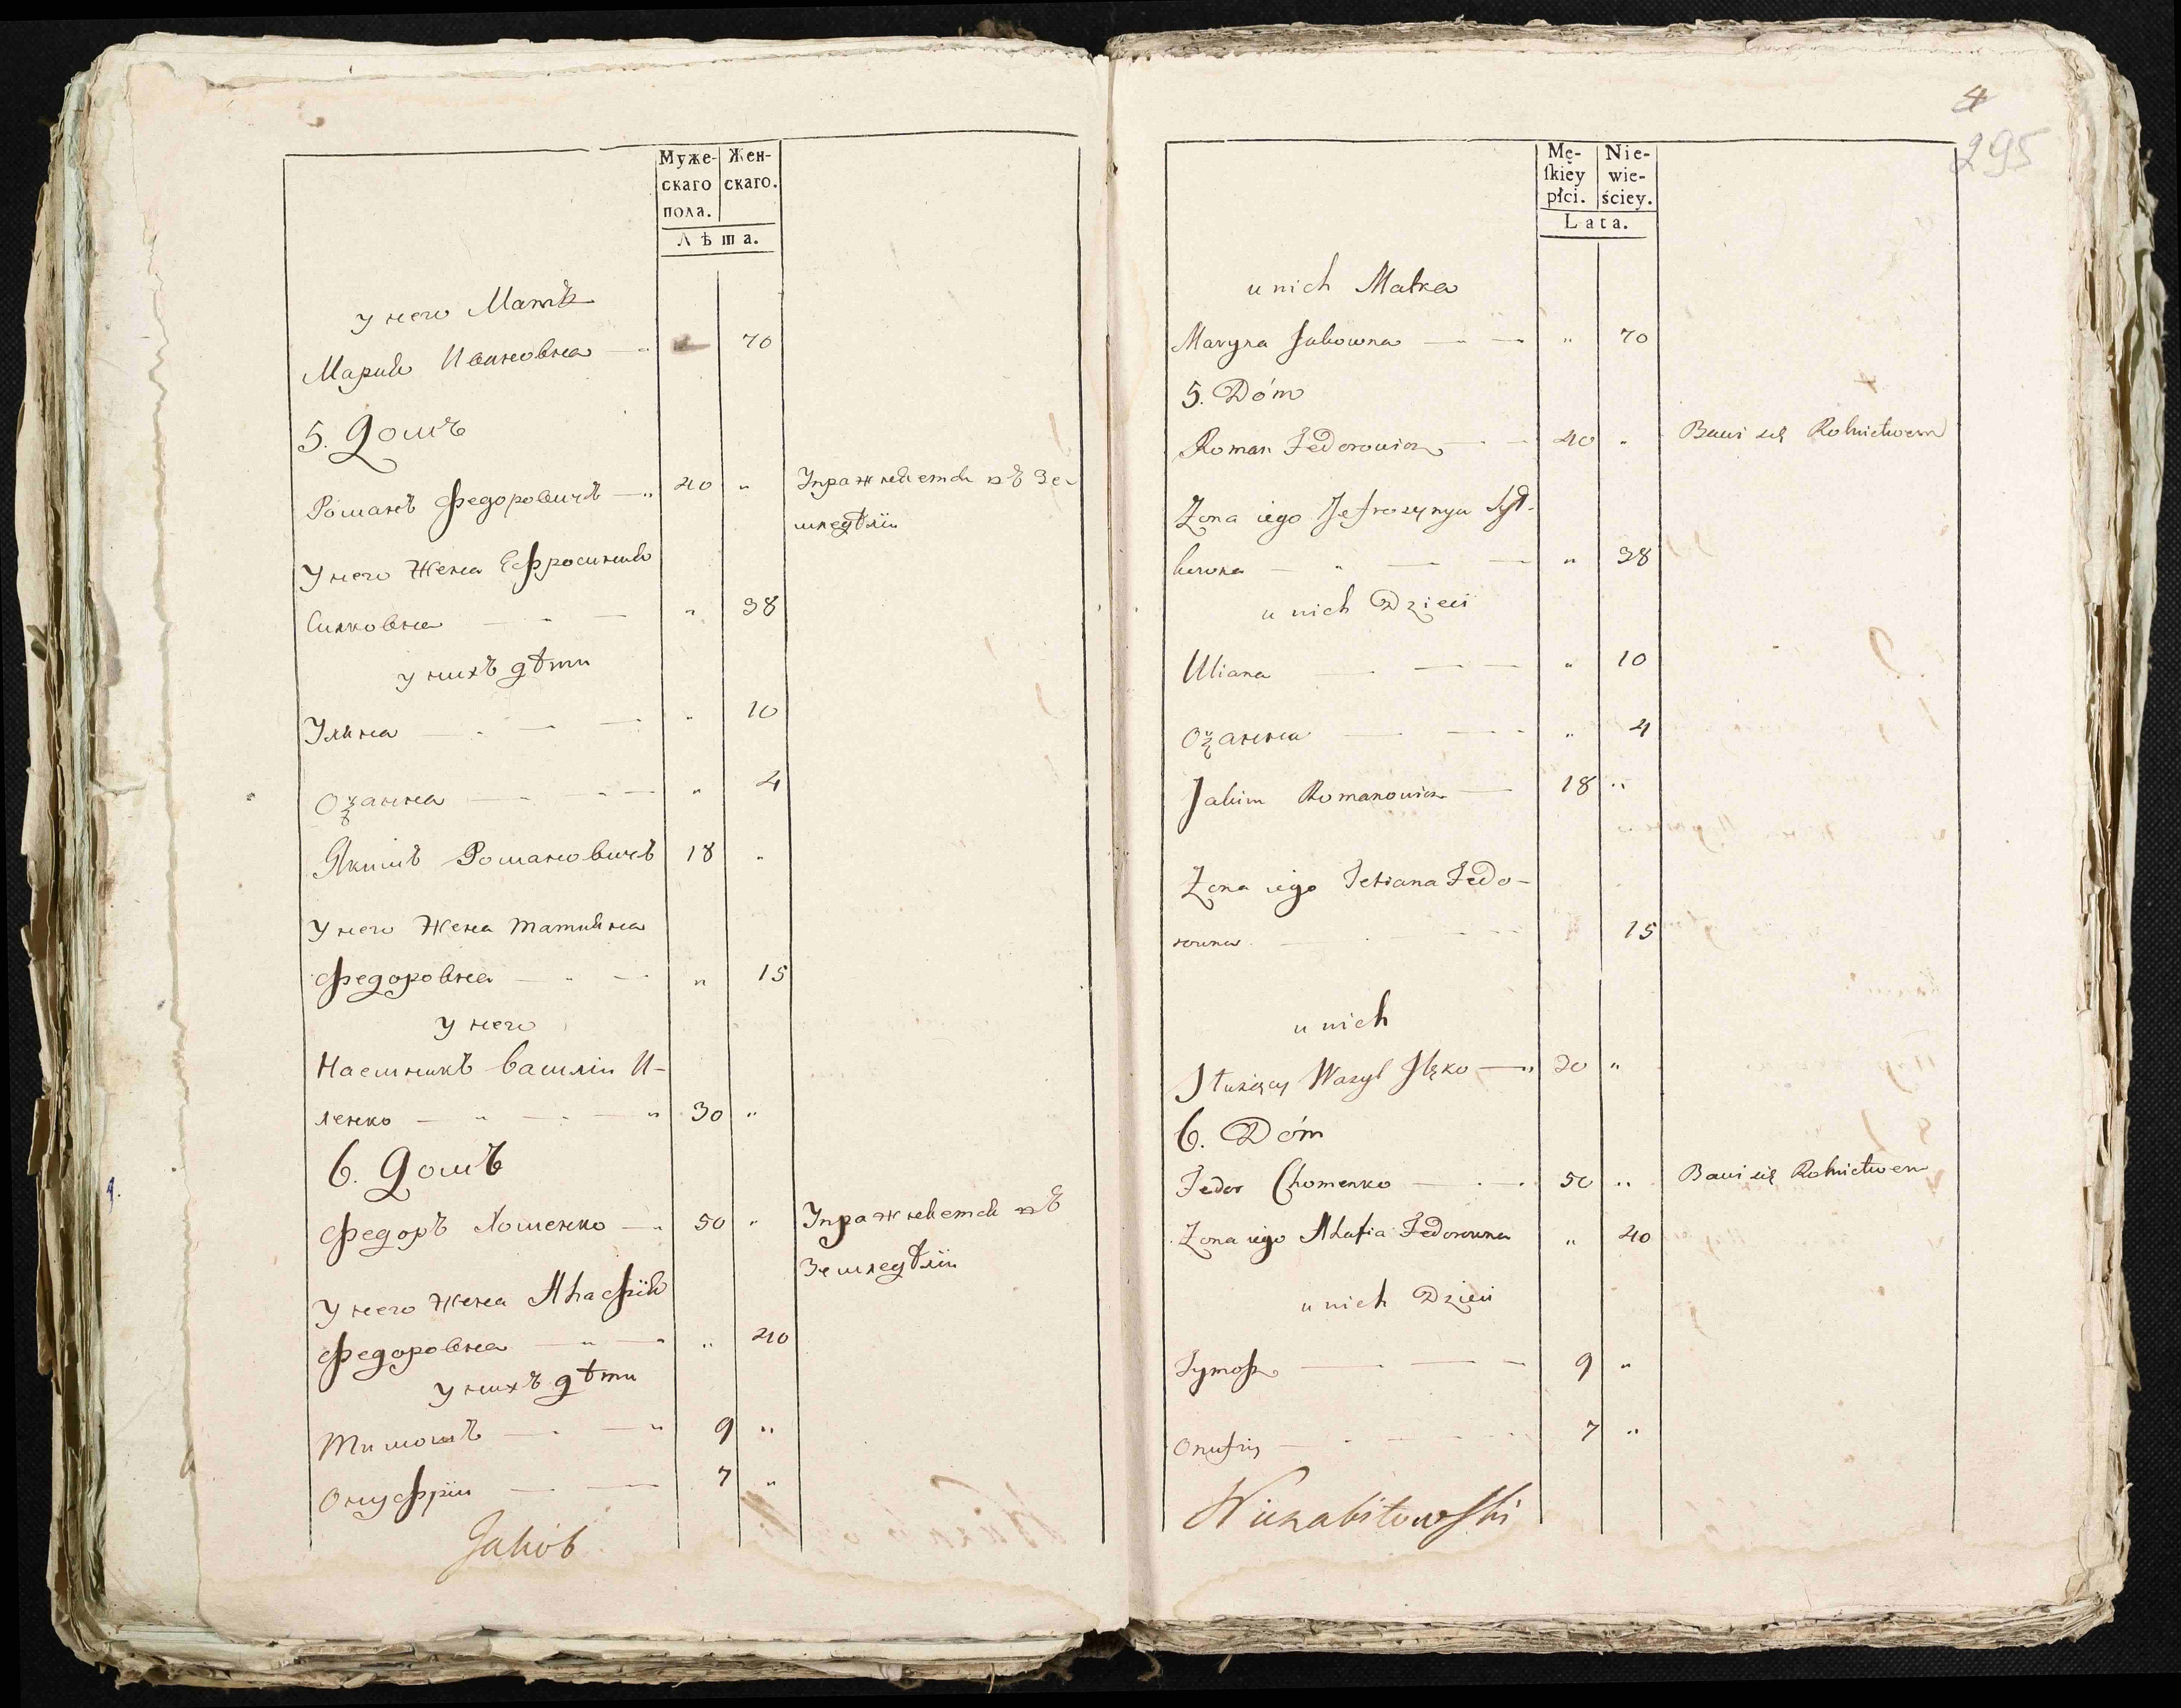 Муже-
скаго
пола.
Жен-
скаго.
Лѣта.
у него Мать
Марія Ивановна — " 70
5. Домъ
Романъ Федоровичъ — " 40 " Упражняется въ Зе-
мледѣліи
У него Жена Ефросинія
Силковна — " — " 38
у нихъ дѣти
Уляна — " — " 10
Озанна — " — " 4
Якимъ Романовичъ 18 "
У него Жена Татияна
Федоровна — " — " 15
У него
Наемникъ Василіи И-
ленко — " — " 30 "
6. Домъ
Федоръ Хоменко — " 50 " Упражняется въ
Земледѣліи
У него Жена Агафія
Федоровна — " — " 40
У нихъ дѣти
Тимошъ — " 9 "
Онуфріи — — 7 "
Jakób
4
295
Mę-
ſkiey
płci.
Nie-
wie-
ściey.
Lata.
u nich Matka
Maryna — " — " 70
5. Dóm
Roman Fedorowicz — — 40 " Bawi się Rolnictwem
Zona iego Jefrozynyia Syl-
kowna — " — — " 38
u nich Dzieci
Uliana — — — " 10
Ozanna — — — " 4
Jakim Romanowicz — 18 "
Zona iego Tetiana Fedo-
rowna — — " 15
u nich
Służący Wasyl Ilęko — " 30 "
6. Dóm
Fedor Chomenko — — 50 " Bawi się Rolnictwem
Zona iego Ahafia Fedorowna " 40
u nich Dzieci
Tymosz — — — 9 "
Onufry — — — 7 "